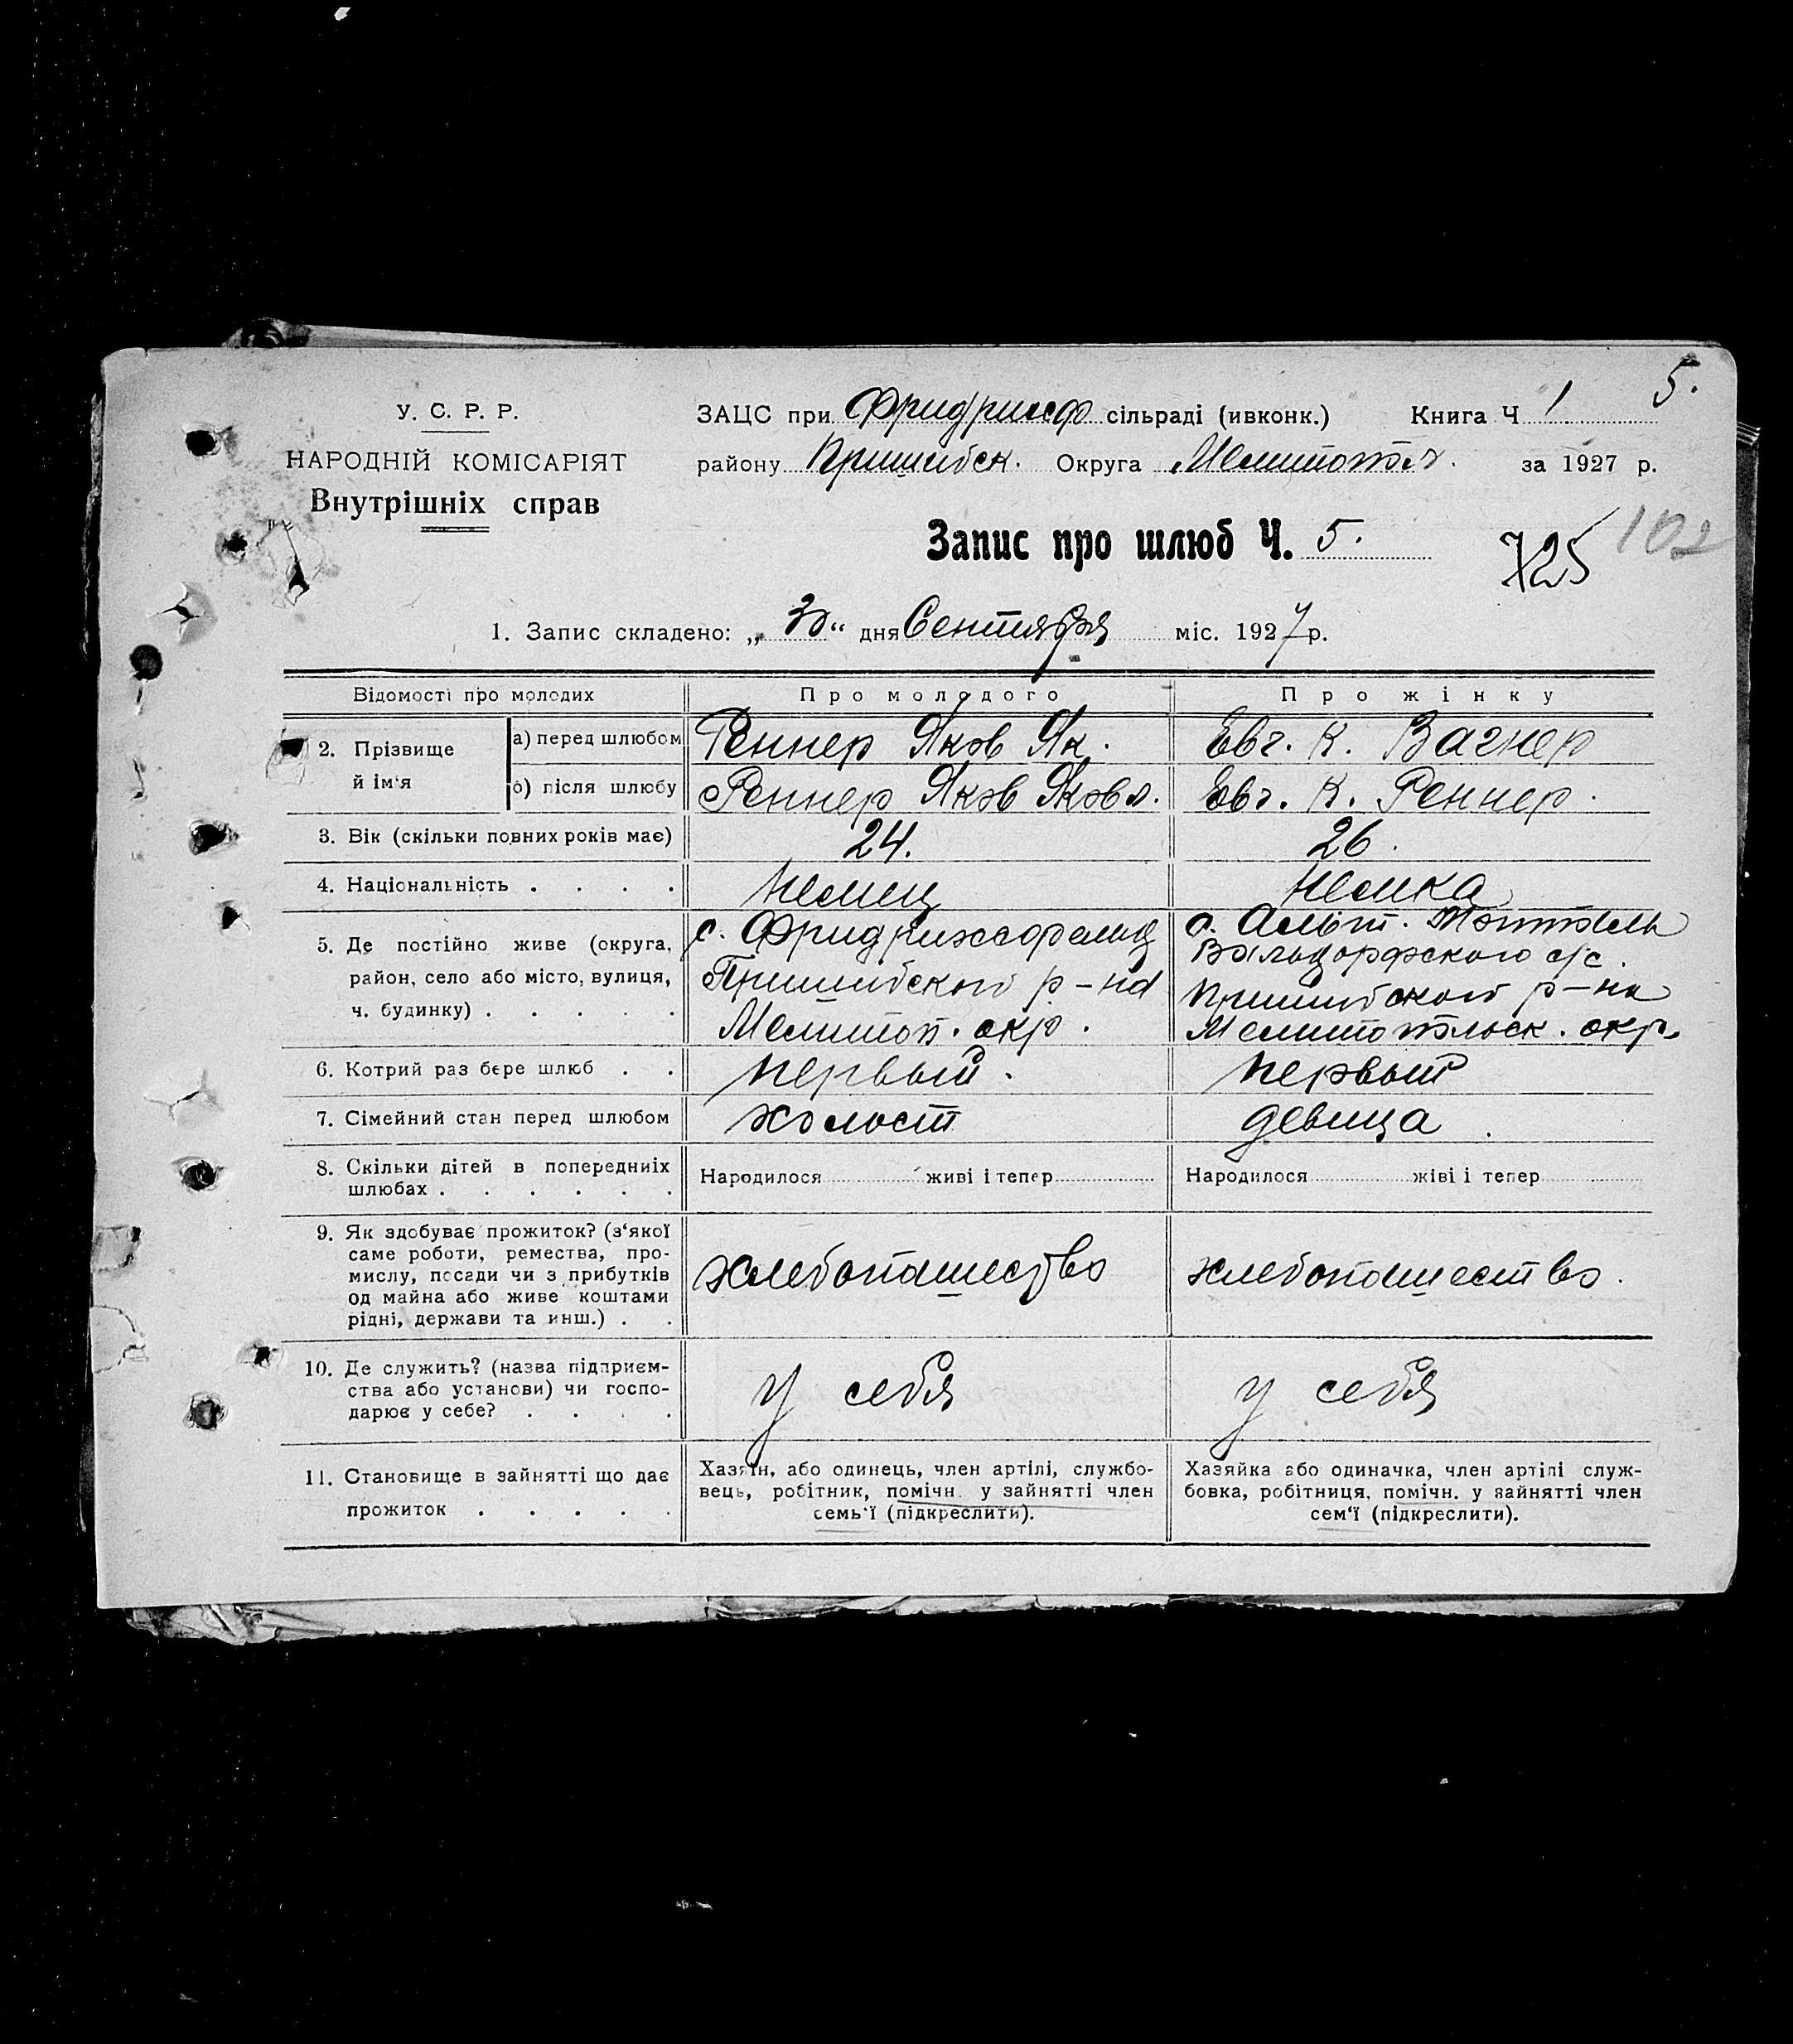 5.
У. С. Р. Р.
НАРОДНІЙ КОМІСАРІЯТ
Внутрішніх справ
ЗАЦС при Фридрихсф сільраді (ивконк.) Книга Ч 1
району Пришибск. Округа Мелитопол. за 1927 р.
Запис про шлюб Ч. 5.
725 102
1. Запис складено: „30“ дня Сентября міс. 1927 р.
Відомості про молодих Про молодого Про жінку
2. Прізвище й ім‘я
а) перед шлюбом Реннер Яков Як. Евг. К. Вагнер
б) після шлюбу Реннер Яков Яковл. Евг. К. Реннер.
3. Вік (скільки повних років має) 24. 26.
4. Національність . . . . немец немка
5. Де постійно живе (округа,
район, село або місто, вулиця,
ч. будинку) . . . . .
с. Фридрихсфельд
Пришибского р-на
Мелитоп. окр.
с. Альт. Монталь
Вальдорфского с/с.
Пришибского р-на
Мелитопольск. окр.
6. Котрий раз бере шлюб . . первый. первый
7. Сімейний стан перед шлюбом холост девица.
8. Скільки дітей в попередниіх
шлюбах . . . . . .
Народилося живі і тепер
Народилося жіві і тепер
9. Як здобуває прожиток? (з‘якої
саме роботи, ремества, про-
мислу, посади чи з прибутків
од майна або живе коштами
рідні, держави та инш.) . .
хлебопашество
хлебопашество.
10. Де служить? (назва підприєм-
ства або установи) чи госпо-
дарює у себе? . . . .
у себя
у себя
11. Становище в зайнятті що дає
прожиток . . . . .
Хазяїн, або одинець, член артілі, службо-
вець, робітник, помічн. у зайнятті член
семь‘ї (підкреслити).
Хазяйка або одиначка, член артілі служ-
бовка, робітниця, помічн. у зайнятті член
сем‘ї (підкреслити).